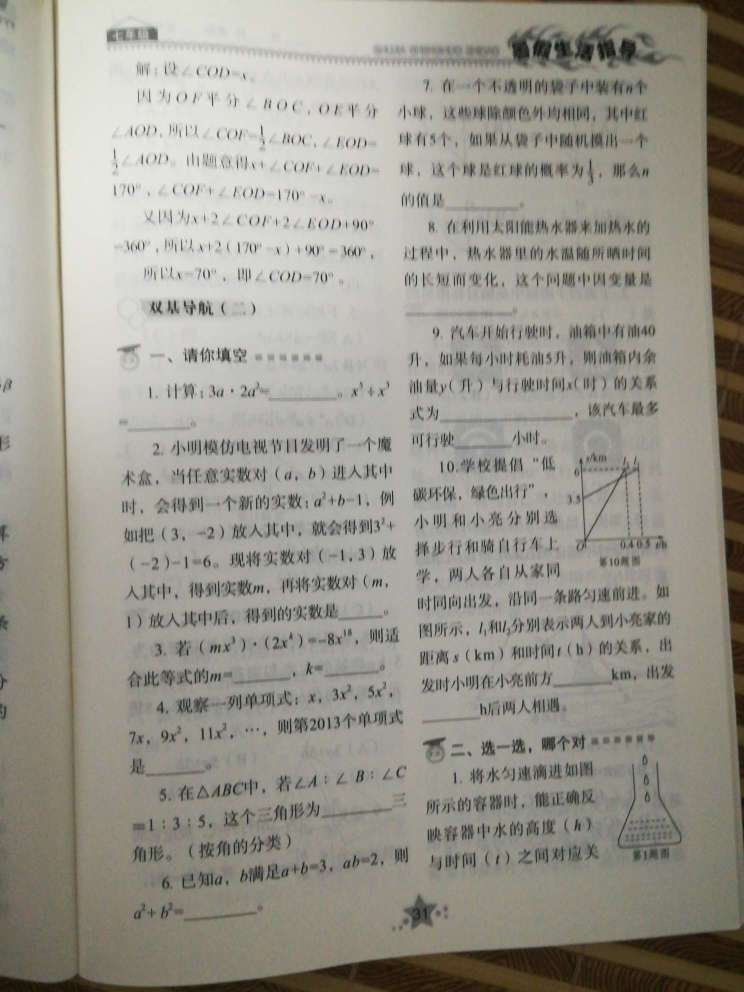 七年级
暑假生活指导
解：设∠COD=x，
因为OF平分∠BOC，OE平分
∠AOD，所以∠COF=1/2∠BOC，∠EOD=
1/2∠AOD。由题意得x+∠COF+∠EOD=
170°，∠COF+∠EOD=170°-x。
又因为x+2∠COF+2∠EOD+90°
=360°，所以x+2(170°-x)+90°=360°，
所以x=70°，即∠COD=70°。
双基导航（二）
一、请你填空
1. 计算：3a·2a²=______。x⁵÷x³
=______。
2. 小明模仿电视节目发明了一个魔
术盒，当任意实数对（a，b）进入其中
时，会得到一个新的实数：a²+b-1，例
如把（3，-2）放入其中，就会得到3²+
（-2）-1=6。现将实数对（-1，3）放
入其中，得到实数m，再将实数对（m，
1）放入其中后，得到的实数是______。
3. 若（mx³）·（2x⁴）=-8x¹⁸，则适
合此等式的m=______，k=______。
4. 观察一列单项式：x，3x²，5x²，
7x，9x²，11x²，…，则第2013个单项式
是______。
5. 在△ABC中，若∠A：∠B：∠C
=1：3：5，这个三角形为______三
角形。（按角的分类）
6. 已知a，b满足a+b=3，ab=2，则
a²+b²=______。
7. 在一个不透明的袋子中装有n个
小球，这些球除颜色外均相同，其中红
球有5个，如果从袋子中随机摸出一个
球，这个球是红球的概率为1/3，那么n
的值是______。
8. 在利用太阳能热水器来加热水的
过程中，热水器里的水温随所晒时间
的长短而变化，这个问题中因变量是
______。
9. 汽车开始行驶时，油箱中有油40
升，如果每小时耗油5升，则油箱内余
油量y（升）与行驶时间x（时）的关系
式为______，该汽车最多
可行驶______小时。
10.学校提倡“低
碳环保，绿色出行”，
小明和小亮分别选
择步行和骑自行车上
学，两人各自从家同
时同向出发，沿同一条路匀速前进。如
图所示，l₁和l₂分别表示两人到小亮家的
距离s（km）和时间t（h）的关系，出
发时小明在小亮前方______km，出发
______h后两人相遇。
s/km
6
3.5
O
0.4 0.5 t/h
第10题图
二、选一选，哪个对
1. 将水匀速滴进如图
所示的容器时，能正确反
映容器中水的高度（h）
与时间（t）之间对应关
第1题图
31